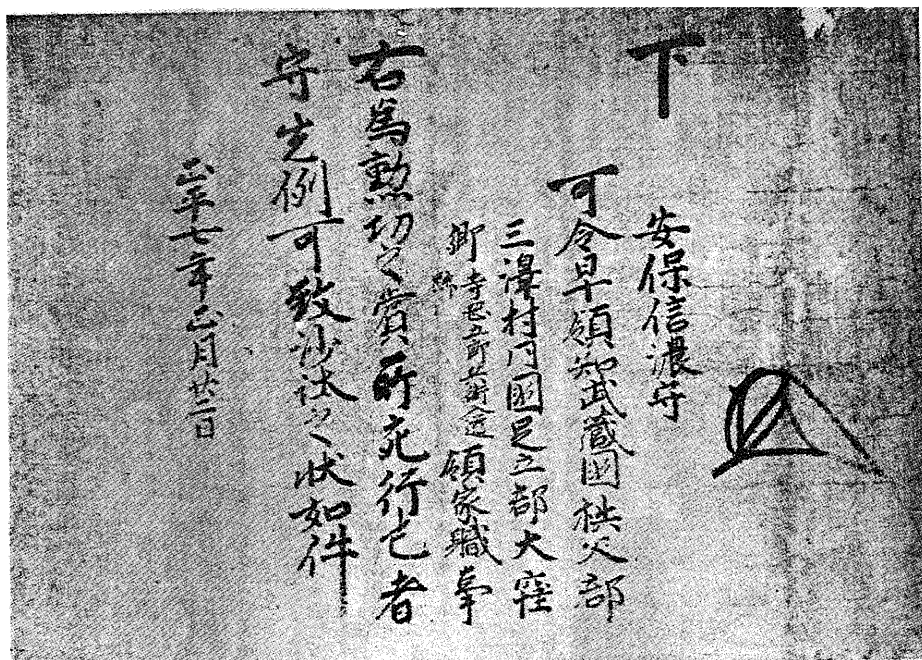 下
安保信濃守
可令早領知武蔵國秩父郡
三澤村同國足立郡大窪
郷 跡 領家職事
右為勲功之賞所充行也者
守先例可致沙汰之状如件
正平七年正月廿二日